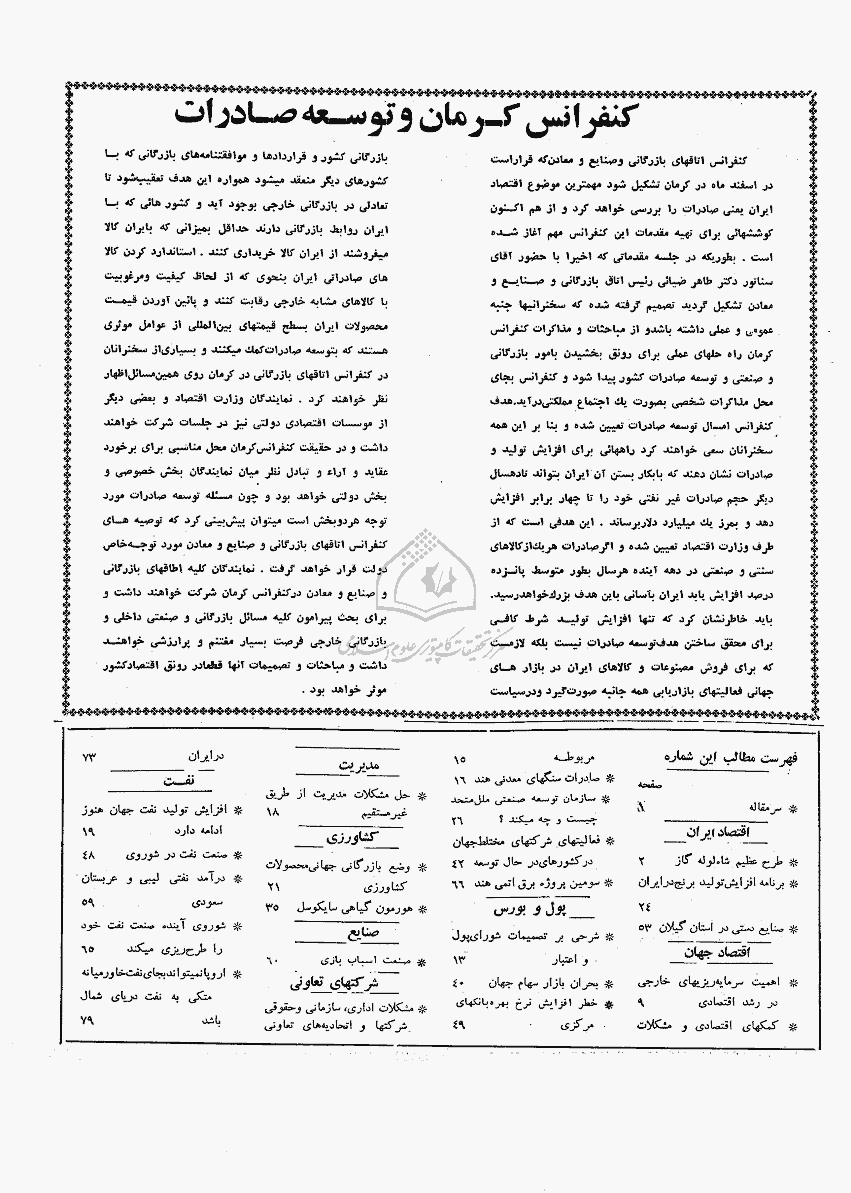 کنفرانس کرمان و توسعه صادرات
کنفرانس اتاقهای بازرگانی وصنایع و معادن‌که قراراست
در اسفند ماه در کرمان تشکیل شود مهمترین موضوع اقتصاد
ایران یعنی صادرات را بررسی خواهد کرد و از هم اکنون
کوششهائی برای تهیه مقدمات این کنفرانس مهم آغاز شده
است . بطوریکه در جلسه مقدماتی که اخیرا با حضور آقای
سناتور دکتر طاهر ضیائی رئیس اتاق بازرگانی و صنایع و
معادن تشکیل گردید تصمیم گرفته شده که سخنرانیها جنبه
عمومی و عملی داشته باشدو از مباحثات و مذاکرات کنفرانس
کرمان راه حلهای عملی برای رونق بخشیدن بامور بازرگانی
و صنعتی و توسعه صادرات کشور پیدا شود و کنفرانس بجای
محل مذاکرات شخصی بصورت یك اجتماع مملکتی‌درآید.هدف
کنفرانس امسال توسعه صادرات تعیین شده و بنا بر این همه
سخنرانان سعی خواهند کرد راههائی برای افزایش تولید و
صادرات نشان دهند که بابکار بستن آن ایران بتواند تادهسال
دیگر حجم صادرات غیر نفتی خود را تا چهار برابر افزایش
دهد و بمرز یك میلیارد دلاربرساند . این هدفی است که از
طرف وزارت اقتصاد تعیین شده و اگرصادرات هریك‌ازکالاهای
سنتی و صنعتی در دهه آینده هرسال بطور متوسط پانزده
درصد افزایش یابد ایران بآسانی باین هدف بزرك‌خواهدرسید.
باید خاطرنشان کرد که تنها افزایش تولید شرط کافی
برای محقق ساختن هدف‌توسعه صادرات نیست بلکه لازمست
که برای فروش مصنوعات و کالاهای ایران در بازار های
جهانی فعالیتهای بازاریابی همه جانبه صورت‌گیرد ودرسیاست
بازرگانی کشور و قراردادها و موافقتنامه‌های بازرگانی که با
کشورهای دیگر منعقد میشود همواره این هدف تعقیب‌شود تا
تعادلی در بازرگانی خارجی بوجود آید و کشور هائی که با
ایران روابط بازرگانی دارند حداقل بمیزانی که بایران کالا
میفروشند از ایران کالا خریداری کنند . استاندارد کردن کالا
های صادراتی ایران بنحوی که از لحاظ کیفیت ومرغوبیت
با کالاهای مشابه خارجی رقابت کنند و پائین آوردن قیمت
محصولات ایران بسطح قیمتهای بین‌المللی از عوامل موثری
هستند که بتوسعه صادرات‌کمك میکنند و بسیاری‌از سخنرانان
در کنفرانس اتاقهای بازرگانی در کرمان روی همین‌مسائل‌اظهار
نظر خواهند کرد . نمایندگان وزارت اقتصاد و بعضی دیگر
از موسسات اقتصادی دولتی نیز در جلسات شرکت خواهند
داشت و در حقیقت کنفرانس‌کرمان محل مناسبی برای برخورد
عقاید و آراء و تبادل نظر میان نمایندگان بخش خصوصی و
بخش دولتی خواهد بود و چون مسئله توسعه صادرات مورد
توجه هردوبخش است میتوان پیش‌بینی کرد که توصیه های
کنفرانس اتاقهای بازرگانی و صنایع و معادن مورد توجه‌خاص
دولت قرار خواهد گرفت . نمایندگان کلیه اطاقهای بازرگانی
و صنایع و معادن درکنفرانس کرمان شرکت خواهند داشت و
برای بحث پیرامون کلیه مسائل بازرگانی و صنعتی داخلی و
بازرگانی خارجی فرصت بسیار مغتنم و پرارزشی خواهند
داشت و مباحثات و تصمیمات آنها قطعادر رونق اقتصادکشور
موثر خواهد بود .
مرکز تحقیقات کامپیوتری علوم اسلامی
فهرست مطالب این شماره
صفحه
* سرمقاله
اقتصاد ایران
* طرح عظیم شاه‌لوله گاز ۲
* برنامه افزایش‌تولید برنج‌درایران
۲۴
* صنایع دستی در استان گیلان ۵۳
اقتصاد جهان
* اهمیت سرمایه‌ریزیهای خارجی
در رشد اقتصادی ۹
* کمکهای اقتصادی و مشکلات
مربوطه ۱۵
* صادرات سنگهای معدنی هند ۱۶
* سازمان توسعه صنعتی ملل‌متحد
چیست و چه میکند ؟ ۲۶
* فعالیتهای شرکتهای مختلط‌جهان
درکشورهای‌در حال توسعه ۴۲
* سومین پروژه برق اتمی هند ۶۶
پول و بورس
* شرحی بر تصمیمات شورای‌پول
و اعتبار ۱۳
* بحران بازار سهام جهان ۴۰
* خطر افزایش نرخ بهره‌بانکهای
مرکزی ۴۹
مدیریت
* حل مشکلات مدیریت از طریق
غیرمستقیم ۱۸
کشاورزی
* وضع بازرگانی جهانی‌محصولات
کشاورزی ۲۱
* هورمون گیاهی سایکوسل ۳۵
صنایع
* صنعت اسباب بازی ۶۰
شرکتهای تعاونی
* مشکلات اداری، سازمانی وحقوقی
شرکتها و اتحادیه‌های تعاونی
درایران ۷۳
نفت
* افزایش تولید نفت جهان هنوز
ادامه دارد ۱۹
* صنعت نفت در شوروی ۴۸
* درآمد نفتی لیبی و عربستان
سعودی ۵۹
* شوروی آینده صنعت نفت خود
را طرح‌ریزی میکند ۶۵
* اروپانمیتواندبجای‌نفت‌خاورمیانه
متکی به نفت دریای شمال
باشد ۷۹